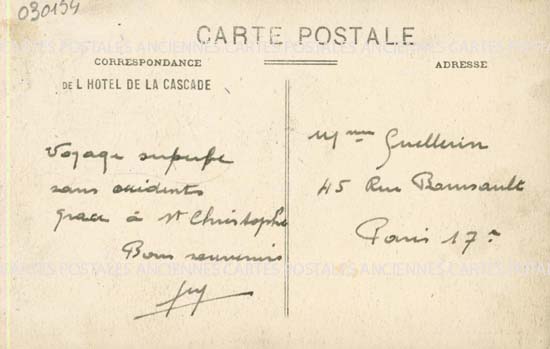 030154
CARTE POSTALE
CARTES POSTALES ANCIENNES CARTES POSTALES ANCIENNES
CORRESPONDANCE
ADRESSE
DE L HOTEL DE LA CASCADE
Voyage superbe
sans accidents
grace à St Christophe
Bons souvenirs
Guy
Mme Guellerin
45 Rue
Paris 17e
CARTES POSTALES ANCIENNES CARTES POSTALES ANCIENNES